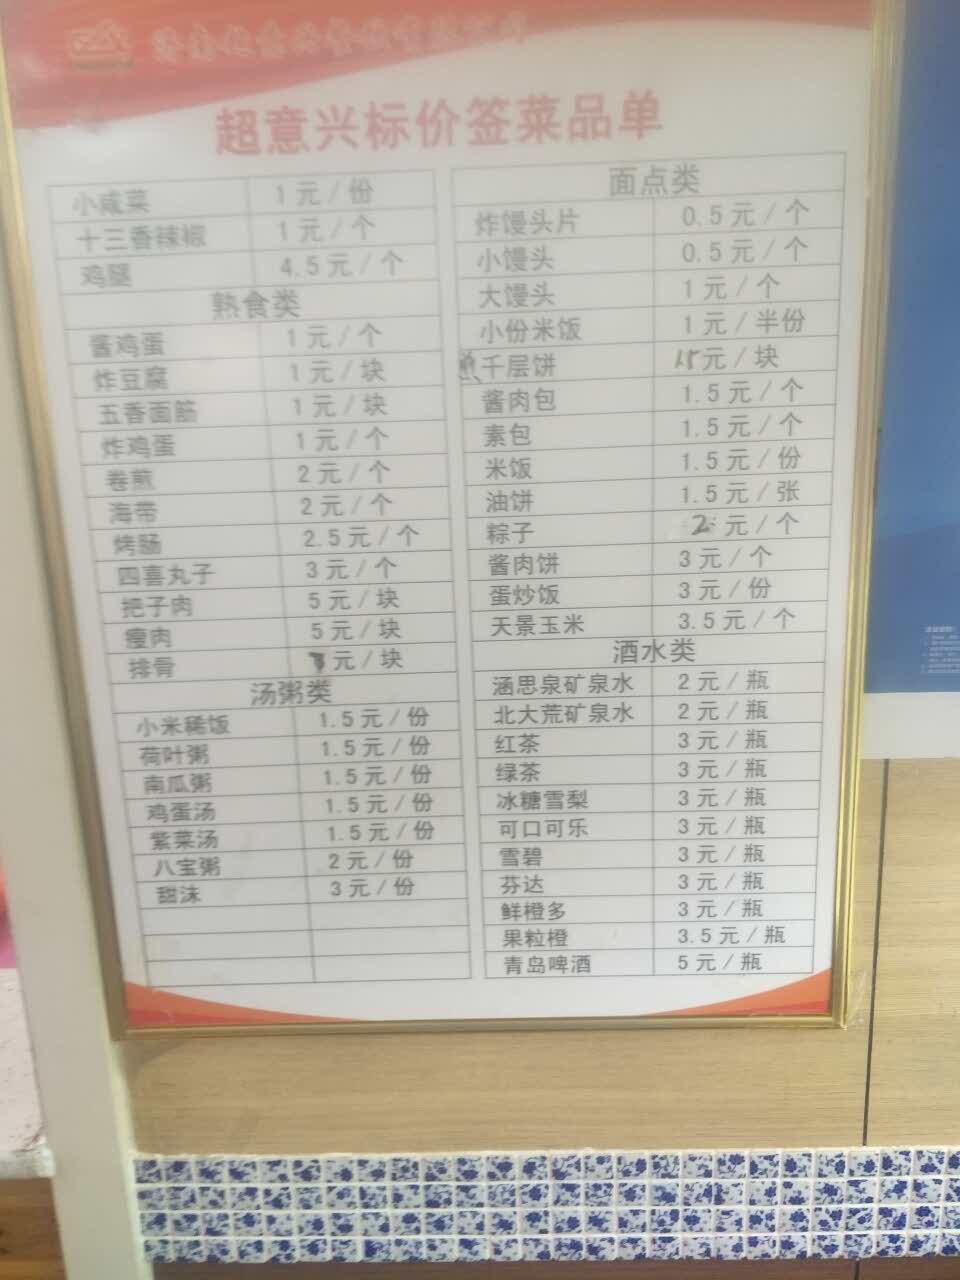 超意兴标价签菜品单
小咸菜 1元/份
十三香辣椒 1元/个
鸡腿 4.5元/个
熟食类
酱鸡蛋 1元/个
炸豆腐 1元/块
五香面筋 1元/块
炸鸡蛋 1元/个
卷煎 2元/个
海带 2元/个
烤肠 2.5元/个
四喜丸子 3元/个
把子肉 5元/块
瘦肉 5元/块
排骨 元/块
汤粥类
小米稀饭 1.5元/份
荷叶粥 1.5元/份
南瓜粥 1.5元/份
鸡蛋汤 1.5元/份
紫菜汤 1.5元/份
八宝粥 2元/份
甜沫 3元/份
面点类
炸馒头片 0.5元/个
小馒头 0.5元/个
大馒头 1元/个
小份米饭 1元/半份
千层饼 元/块
酱肉包 1.5元/个
素包 1.5元/个
米饭 1.5元/份
油饼 1.5元/张
粽子 2元/个
酱肉饼 3元/个
蛋炒饭 3元/份
天景玉米 3.5元/个
酒水类
涵思泉矿泉水 2元/瓶
北大荒矿泉水 2元/瓶
红茶 3元/瓶
绿茶 3元/瓶
冰糖雪梨 3元/瓶
可口可乐 3元/瓶
雪碧 3元/瓶
芬达 3元/瓶
鲜橙多 3元/瓶
果粒橙 3.5元/瓶
青岛啤酒 5元/瓶